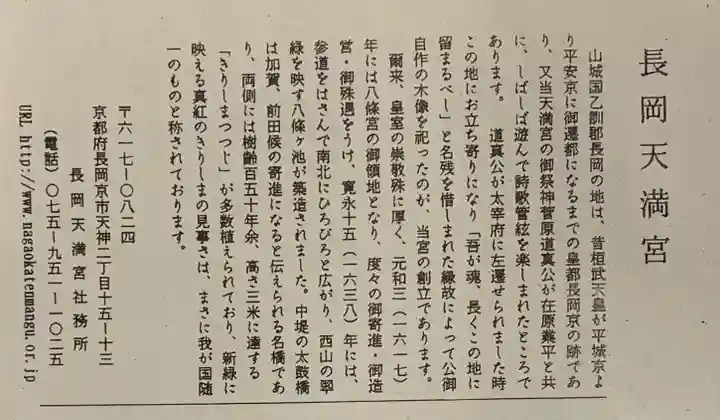 長岡天満宮
山城国乙訓郡長岡の地は、昔桓武天皇が平城京よ
り平安京に御遷都になるまでの皇都長岡京の跡であ
り、又当天満宮の御祭神菅原道真公が在原業平と共
に、しばしば遊んで詩歌管絃を楽しまれたところで
あります。 道真公が太宰府に左遷せられました時
この地にお立ち寄りになり「吾が魂、長くこの地に
留まるべし」と名残を惜しまれた縁故によって公御
自作の木像を祀ったのが、当宮の創立であります。
爾来、皇室の崇敬殊に厚く、元和三（一六一七）
年には八條宮の御領地となり、度々の御寄進・御造
営・御殊遇をうけ、寛永十五（一六三八）年には、
参道をはさんで南北にひろびろと広がり、西山の翠
緑を映す八條ヶ池が築造されました。中堤の太鼓橋
は加賀、前田候の寄進になると伝えられる名橋であ
り、両側には樹齢百五十年余、高さ三米に達する
「きりしまつつじ」が多数植えられており、新緑に
映える真紅のきりしまの見事さは、まさに我が国随
一のものと称されております。
〒六一七―〇八二四
京都府長岡京市天神二丁目十五―十三
長岡天満宮社務所
（電話）〇七五―九五一―一〇二五
URL http://www.nagaokatenmangu.or.jp